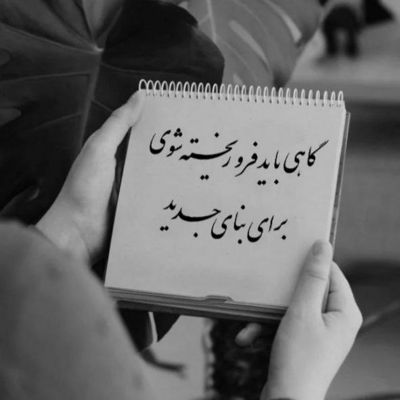 گاهی باید فرو ریخته شوی
برای بنای جدید